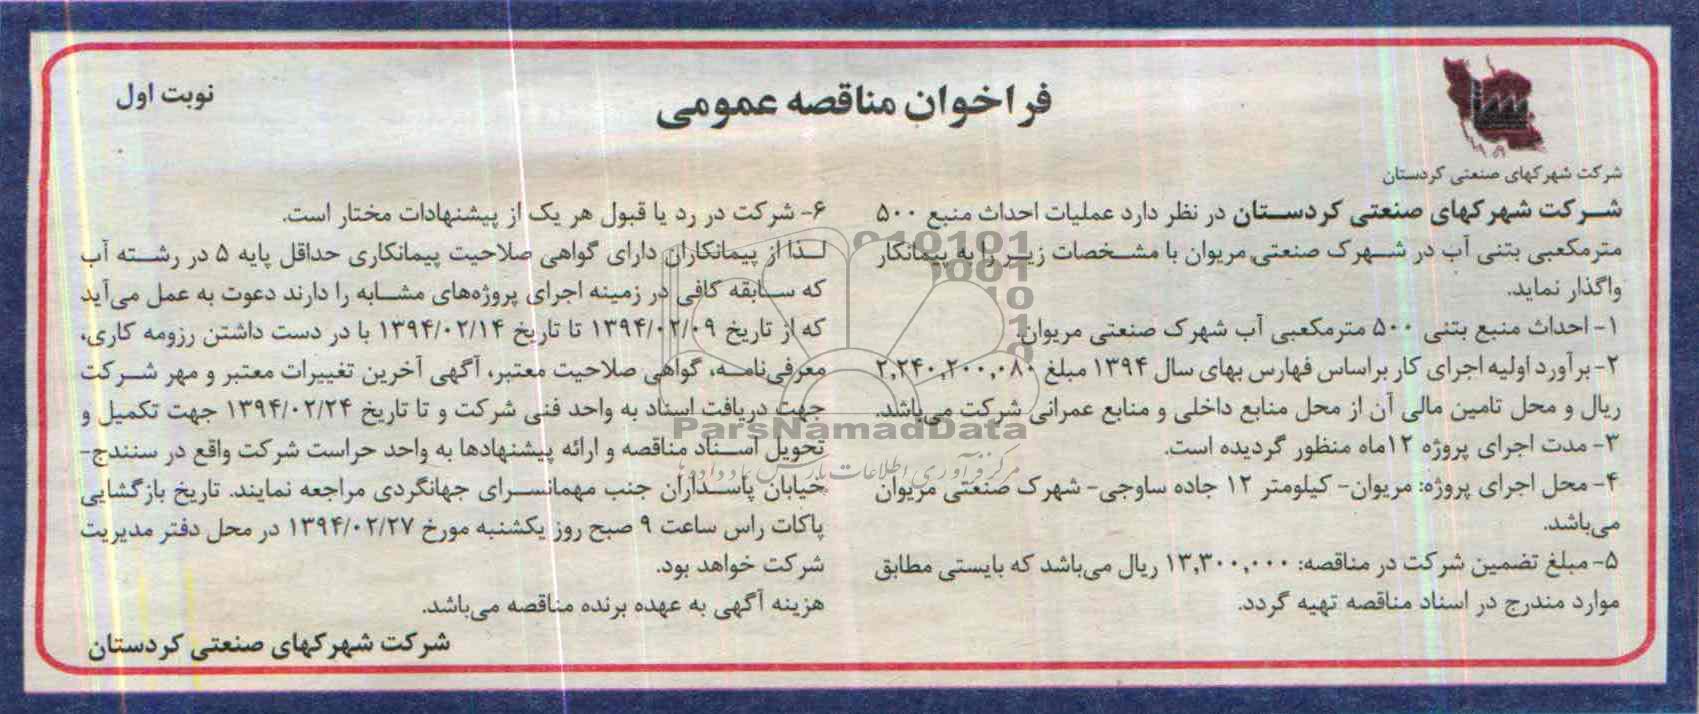 فراخوان مناقصه عمومی
نوبت اول
شرکت شهرکهای صنعتی کردستان
شرکت شهرکهای صنعتی کردستان در نظر دارد عملیات احداث منبع ۵۰۰
مترمکعبی بتنی آب در شهرک صنعتی مریوان با مشخصات زیر را به پیمانکار
واگذار نماید.
۱- احداث منبع بتنی ۵۰۰ مترمکعبی آب شهرک صنعتی مریوان.
۲- برآورد اولیه اجرای کار براساس فهارس بهای سال ۱۳۹۴ مبلغ ۲,۲۴۰,۲۰۰,۰۸۰
ریال و محل تامین مالی آن از محل منابع داخلی و منابع عمرانی شرکت می‌باشد.
۳- مدت اجرای پروژه ۱۲ماه منظور گردیده است.
۴- محل اجرای پروژه: مریوان- کیلومتر ۱۲ جاده ساوجی- شهرک صنعتی مریوان
می‌باشد.
۵- مبلغ تضمین شرکت در مناقصه: ۱۳,۳۰۰,۰۰۰ ریال می‌باشد که بایستی مطابق
موارد مندرج در اسناد مناقصه تهیه گردد.
۶- شرکت در رد یا قبول هر یک از پیشنهادات مختار است.
لذا از پیمانکاران دارای گواهی صلاحیت پیمانکاری حداقل پایه ۵ در رشته آب
که سابقه کافی در زمینه اجرای پروژه‌های مشابه را دارند دعوت به عمل می‌آید
که از تاریخ ۱۳۹۴/۰۲/۰۹ تا تاریخ ۱۳۹۴/۰۲/۱۴ با در دست داشتن رزومه کاری،
معرفی‌نامه، گواهی صلاحیت معتبر، آگهی آخرین تغییرات معتبر و مهر شرکت
جهت دریافت اسناد به واحد فنی شرکت و تا تاریخ ۱۳۹۴/۰۲/۲۴ جهت تکمیل و
تحویل اسناد مناقصه و ارائه پیشنهادها به واحد حراست شرکت واقع در سنندج-
خیابان پاسداران جنب مهمانسرای جهانگردی مراجعه نمایند. تاریخ بازگشایی
پاکات راس ساعت ۹ صبح روز یکشنبه مورخ ۱۳۹۴/۰۲/۲۷ در محل دفتر مدیریت
شرکت خواهد بود.
هزینه آگهی به عهده برنده مناقصه می‌باشد.
شرکت شهرکهای صنعتی کردستان
ParsNamadData
مرکز فرآوری اطلاعات پارس نماد داده ها